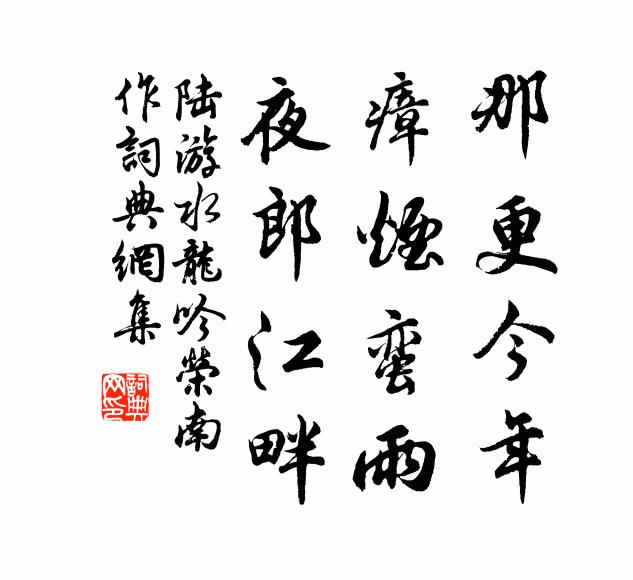 那更今年
瘴煙蛮雨
夜郎江畔
陆游水龍吟榮南
作詞典網集
詞典网印